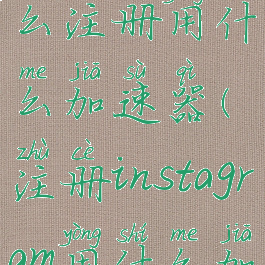 么注册用什
me jiā sù qì
么加速器(
zhù cè
注册instagr
yòng shí me jiā
am用什么加